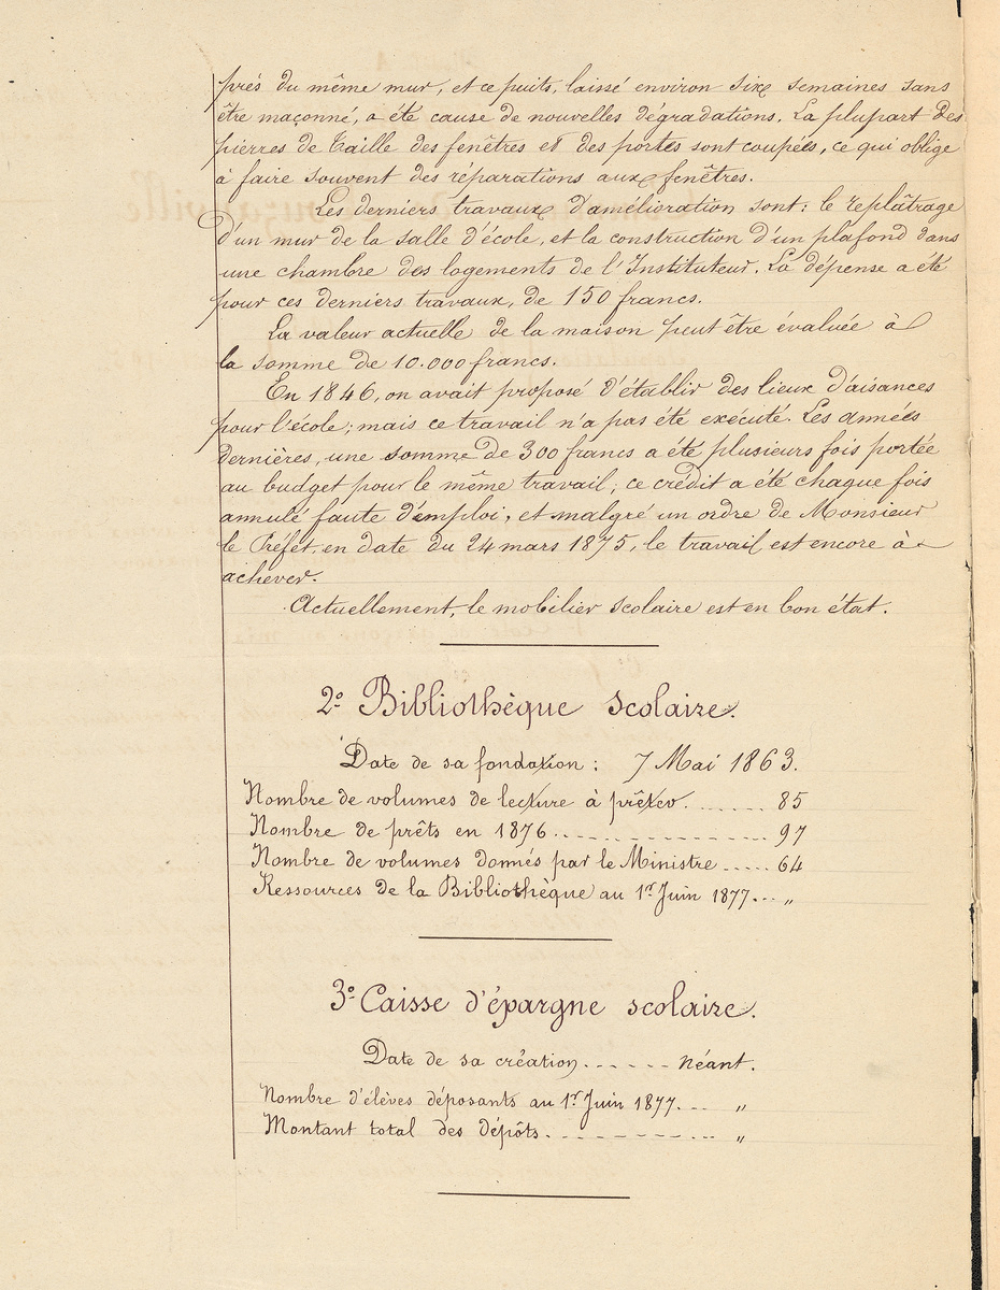 près du même mur, et ce puits, laissé environ six semaines sans
être maçonné, a été cause de nouvelles dégradations. La plupart des
pierres de taille des fenêtres et des portes sont coupées, ce qui oblige
à faire souvent des réparations aux fenêtres.
Les derniers travaux d'amélioration sont: le replâtrage
d'un mur de la salle d'école, et la construction d'un plafond dans
une chambre des logements de l'Instituteur. La dépense a été
pour ces derniers travaux, de 150 francs.
La valeur actuelle de la maison peut être évaluée à
la somme de 10.000 francs.
En 1846, on avait proposé d'établir des lieux d'aisances
pour l'école; mais ce travail n'a pas été exécuté. Les années
dernières, une somme de 300 francs a été plusieurs fois portée
au budget pour le même travail; ce crédit a été chaque fois
annulé faute d'emploi, et malgré un ordre de Monsieur
le Préfet, en date du 24 mars 1875, le travail est encore à
achever.
Actuellement, le mobilier scolaire est en bon état.
2° Bibliothèque scolaire.
Date de sa fondation: 7 Mai 1863.
Nombre de volumes de lecture à prêter. ....... 85
Nombre de prêts en 1876................... 97
Nombre de volumes donnés par le Ministre ..... 64
Ressources de la Bibliothèque au 1er Juin 1877... "
3° Caisse d'épargne scolaire.
Date de sa création....... néant.
Nombre d'élèves déposants au 1er Juin 1877.... "
Montant total des dépôts.............. "